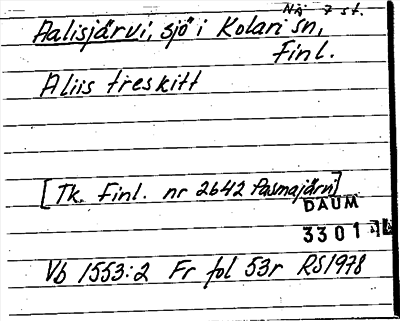 Nä 7 st.
Aalisjärvi, sjö i Kolari sn,
Finl.
Aliis treskitt
[Tk. Finl. nr 2642 Pasmajärvi]
DAUM
3301
Vb 1553:2 Fr fol 53r RS1978